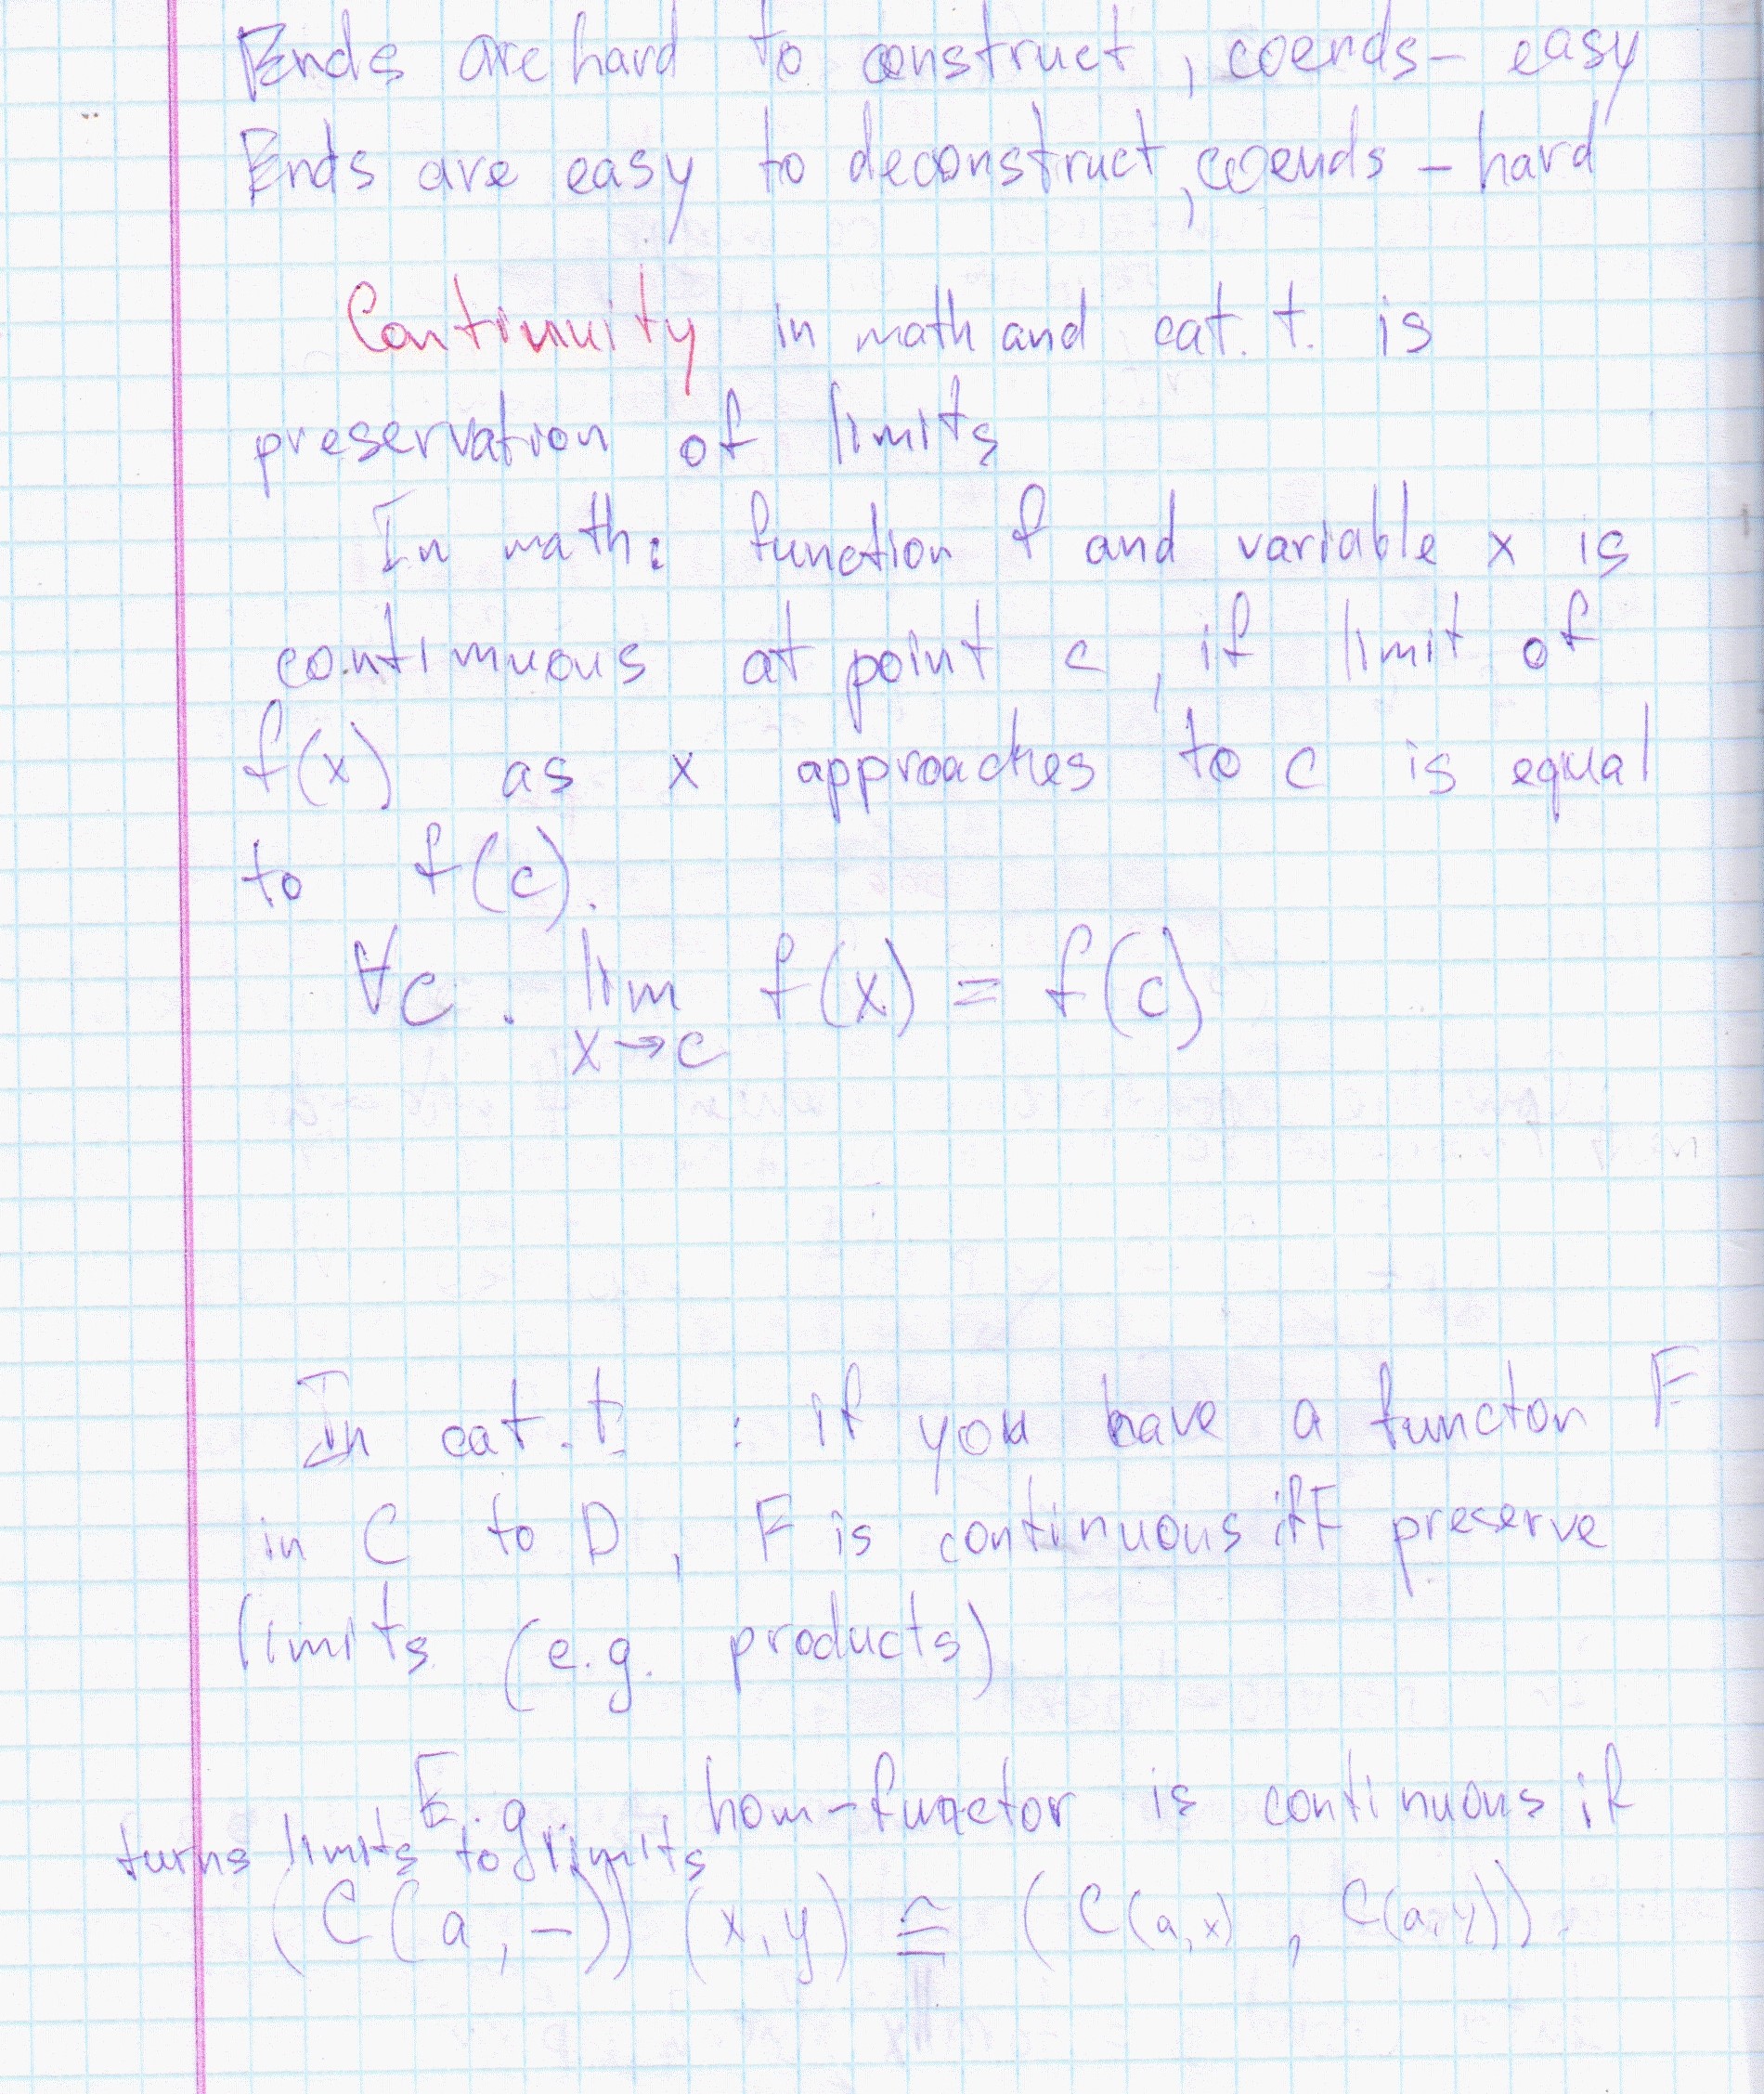 Ends are hard to construct, coends - easy
Ends are easy to deconstruct, coends - hard
Continuity in math and cat. t. is
preservation of limits
In math: function f and variable x is
continuous at point c, if limit of
f(x) as x approaches to c is equal
to f(c).
∀c. lim f(x) = f(c)
x→c
In cat. t. : if you have a functor F
in C to D, F is continuous iff preserve
limits (e.g. products)
E.g. hom-functor is continuous if
turns limits to limits
(C(a,-))(x,y) ≅ (C(a,x), C(a,y)).